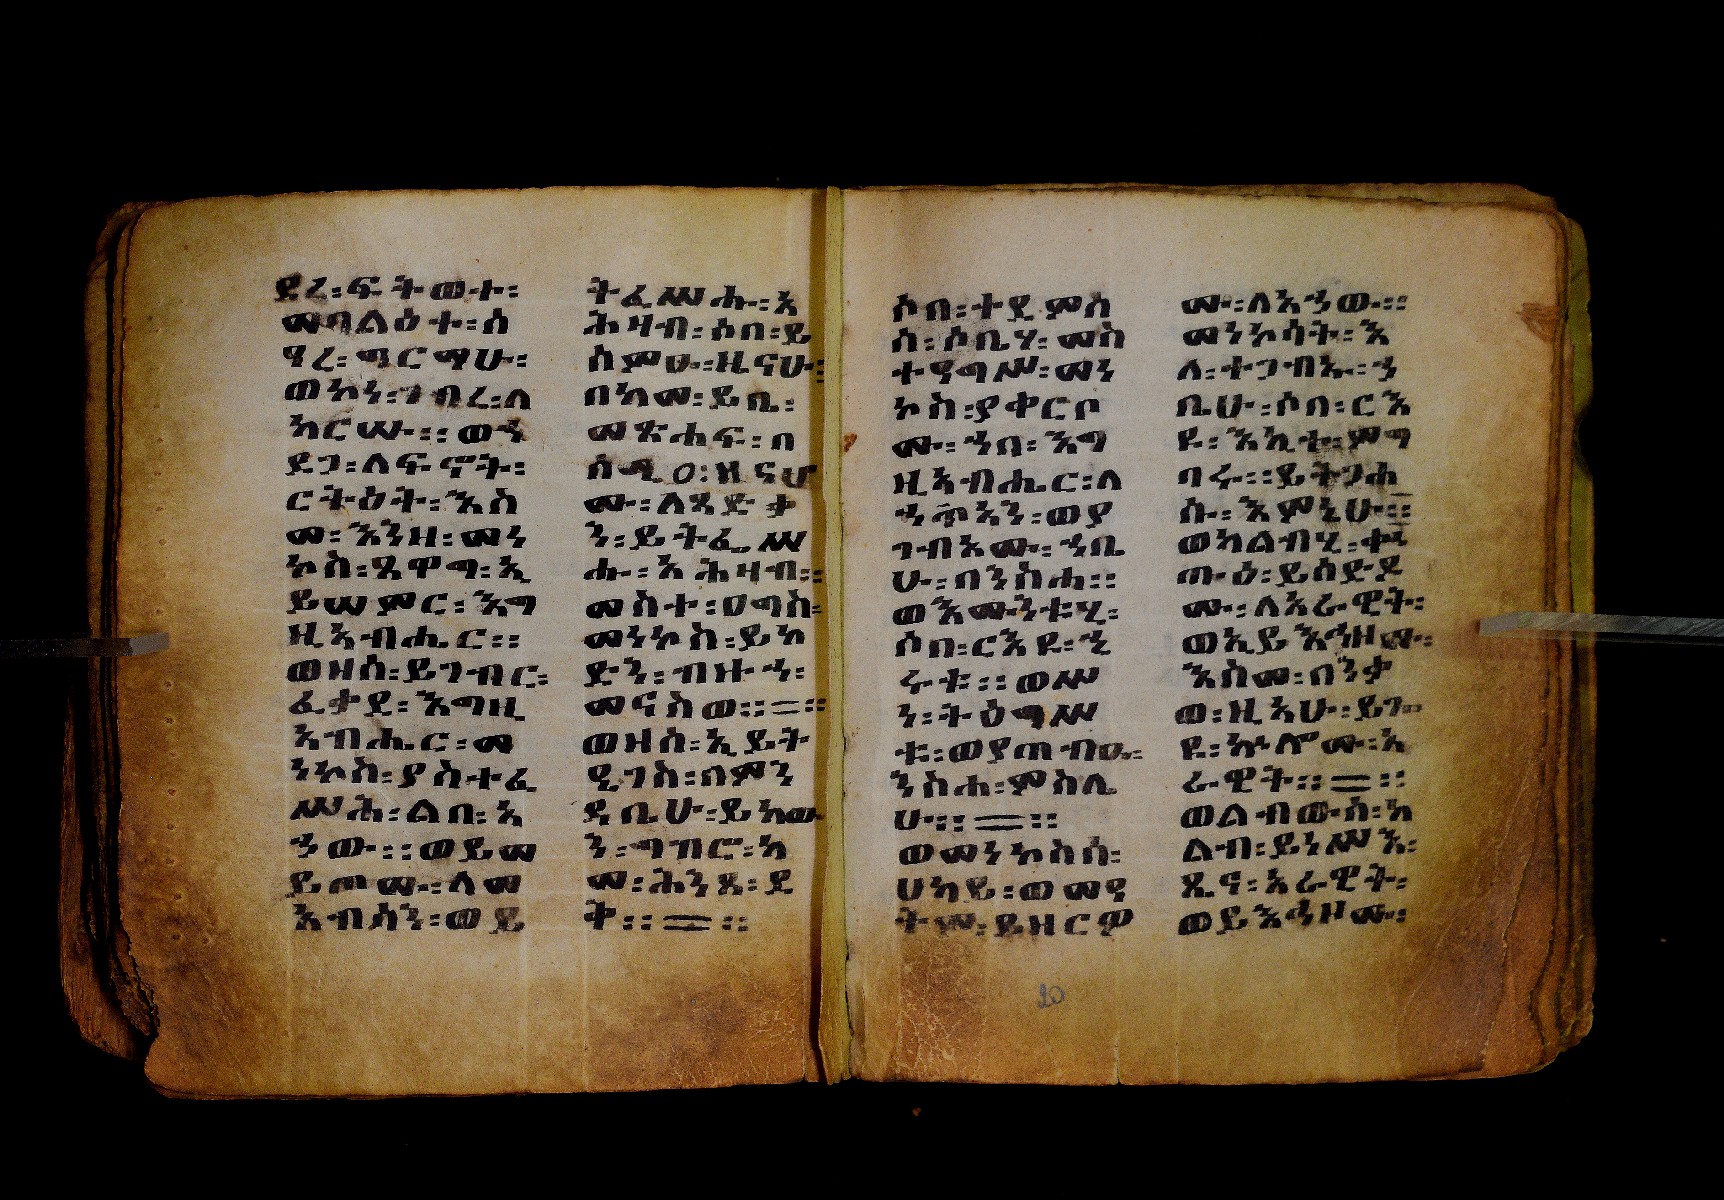 ደረ፡ፍትወተ፡
መባልዕተ፡ሰ
ዓረ፡ግርማሁ፡
ወኮነ፡ገብረ፡ለ
ካርሡ፡፡ወኀ
ደጋ፡ለፍኖት፡
ርትዕት፡እስ
መ፡እንዘ፡መነ
ኮስ፡ጼዋግ፡ኢ
ይሠምር፡እግ
ዚአብሔር፡፡
ወዘሰ፡ይገብር፡
ፈቃደ፡እግዚ
አብሔር፡መ
ነኮስ፡ያስተፈ
ሥሕ፡ልበ፡አ
ኀው፡፡ወይመ
ይጦሙ፡ለመ
አብስን፡ወይ
ትፈሣሑ፡አ
ሕዛብ፡ሶበ፡ይ
ሰምዑ፡ዜናሁ፡
በከመ፡ይቤ፡
መጽሐፍ፡በ
ሰላዐ፡ዜናሆ
ሙ፡ለጻድቃ
ን፡ይትፌሣ
ሑ፡አሕዛብ፡፡
መስተፀግስ፡
መነኮስ፡ይኮ
ድን፡ብዙኀ፡
መናስወ፡፡=፡፡
ወዘሰ፡ኢይት
ዔገስ፡በምን
ዳቤሁ፡ይከው
ን፡ግዝሮ፡ከ
መ፡ሕንጼ፡ደ
ቅ፡፡=፡፡
ሶበ፡ተደምሰ
ሰ፡ሶቤሃ፡መስ
ተዓግሥ፡መነ
ኮስ፡ያቀርቦ
ሙ፡ኀበ፡እግ
ዚአብሔር፡ለ
ኀጥአን፡ወያ
ገብአሙ፡ኀቤ
ሁ፡በንስሐ፡፡
ወእሙንቱሂ፡
ሶበ፡ርእዩ፡ኂ
ሩቱ፡፡ወሥ
ነ፡ትዕግሥ
ቱ፡ወያጠብዑ፡
ንስሐ፡ምስሌ
ሁ፡፡=፡፡
ወመነኮስሰ፡
ሀካይ፡ወመዓ
ትም፡ይዘርዎ
ሙ፡ለአኀው፡፡
መነኮሳት፡እ
ለ፡ተጋብኡ፡ኀ
ቤሁ፡ሶበ፡ርእ
ዩ፡እኪተ፡ምግ
ባሩ፡፡ይትጋሐ
ሱ፡እምኔሁ፡፡
ወካልብሂ፡ቀዊ
ጡዕ፡ይሰድዶ
ሙ፡ለአራዊት፡
ወኢይእኅዘሙ፡
እስመ፡በንቃ
ወ፡ዚአሁ፡ይጐ
ዩ፡ኵሎሙ፡አ
ራዊት፡፡=፡፡
ወልብውሰ፡ከ
ልብ፡ይነሥእ፡
ጼና፡አራዊት፡
ወይእኅዞሙ፡